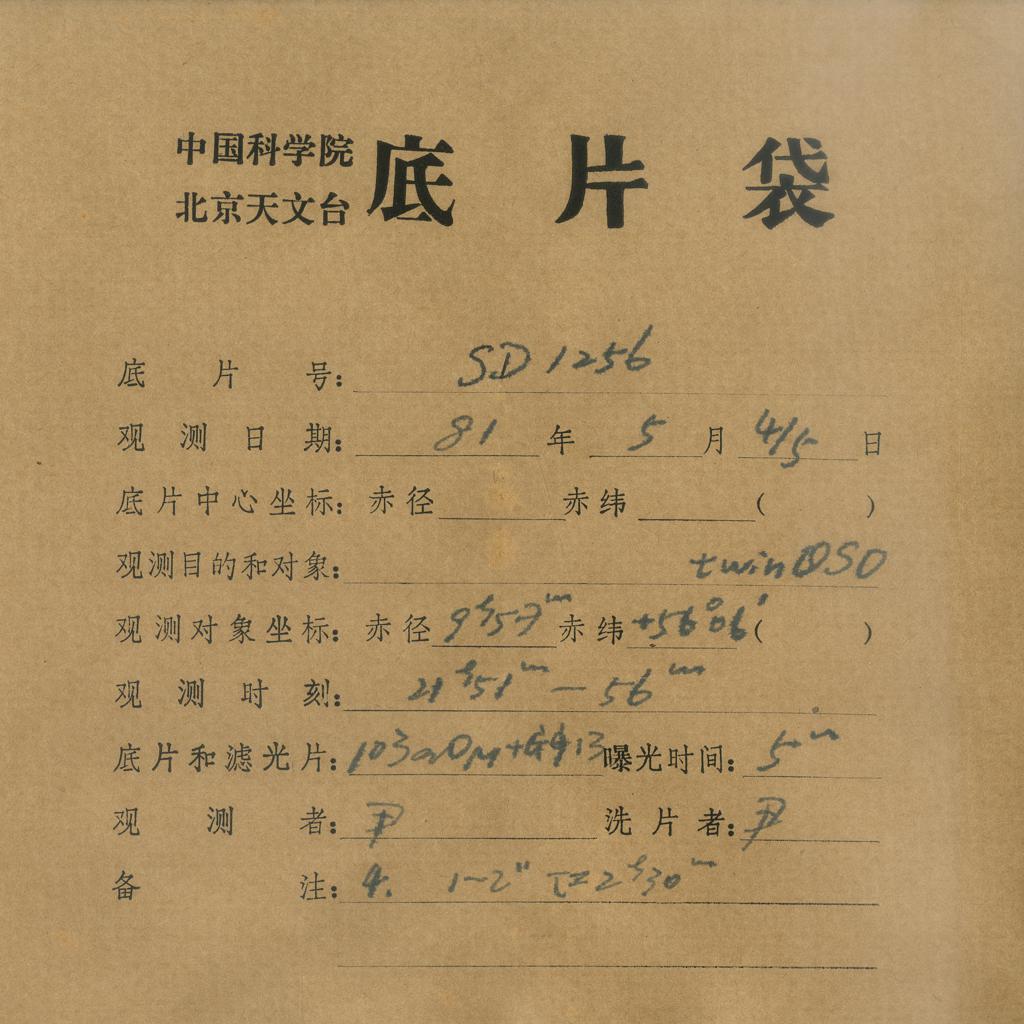 中国科学院
北京天文台
底片袋
底片号: SD 1256
观测日期: 81年5月4/5日
底片中心坐标: 赤径 赤纬 ( )
观测目的和对象: twin QSO
观测对象坐标: 赤径 9ʰ57ᵐ 赤纬 +56°06′ ( )
观测时刻: 21ʰ51ᵐ—56ᵐ
底片和滤光片: 103aO 曝光时间: 5ᵐ
观测者: 尹
洗片者: 尹
备注: 4. 1-2″ t=2ʰ30ᵐ